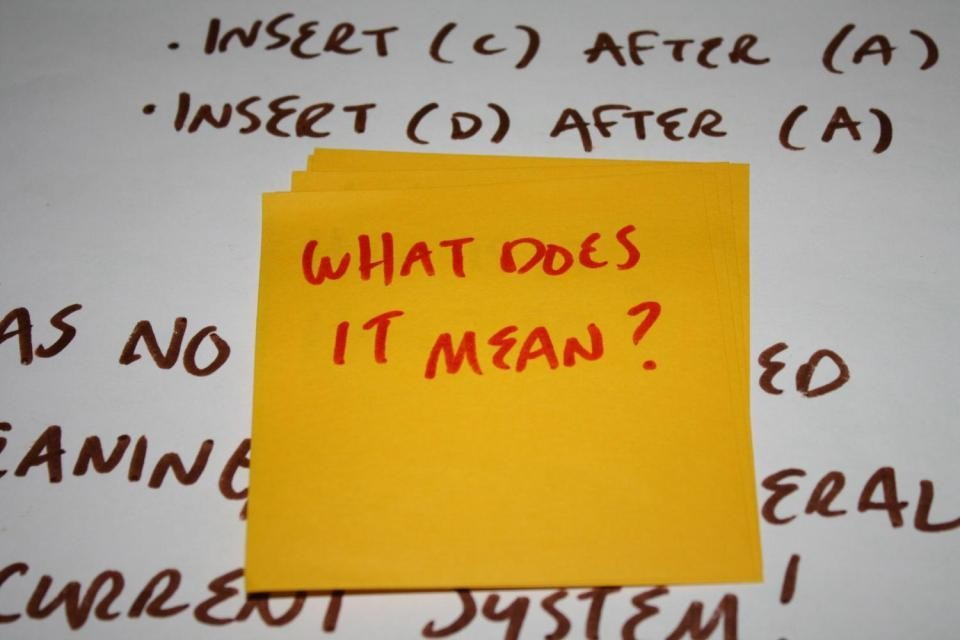 · INSERT (C) AFTER (A)
· INSERT (D) AFTER (A)
WHAT DOES
IT MEAN?
AS NO ED
EANING ERAL
CURRENT SYSTEM!